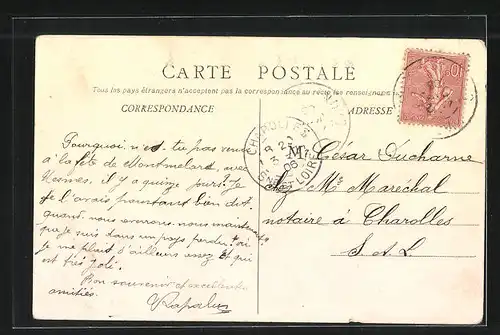 CARTE POSTALE
Tous les pays étrangers n'acceptent pas la correspondance au recto (se renseigner
CORRESPONDANCE
ADRESSE
Pourquoi n'est tu pas venu
à la fête de Montmelard, avec
il y a quinze jours? Je
te l'avais pourtant bien dit,
quand nous maintenant
que je suis dans un pays perdu! où
je me plais d'ailleurs assez et qui
est très joli.
Bon souvenir d'excellentes
amitiés.
M César Ducharne
chez Me Maréchal
notaire à Charolles
S. et L.
CHAROLLES
8 2
06
SNE ET LOIRE
10